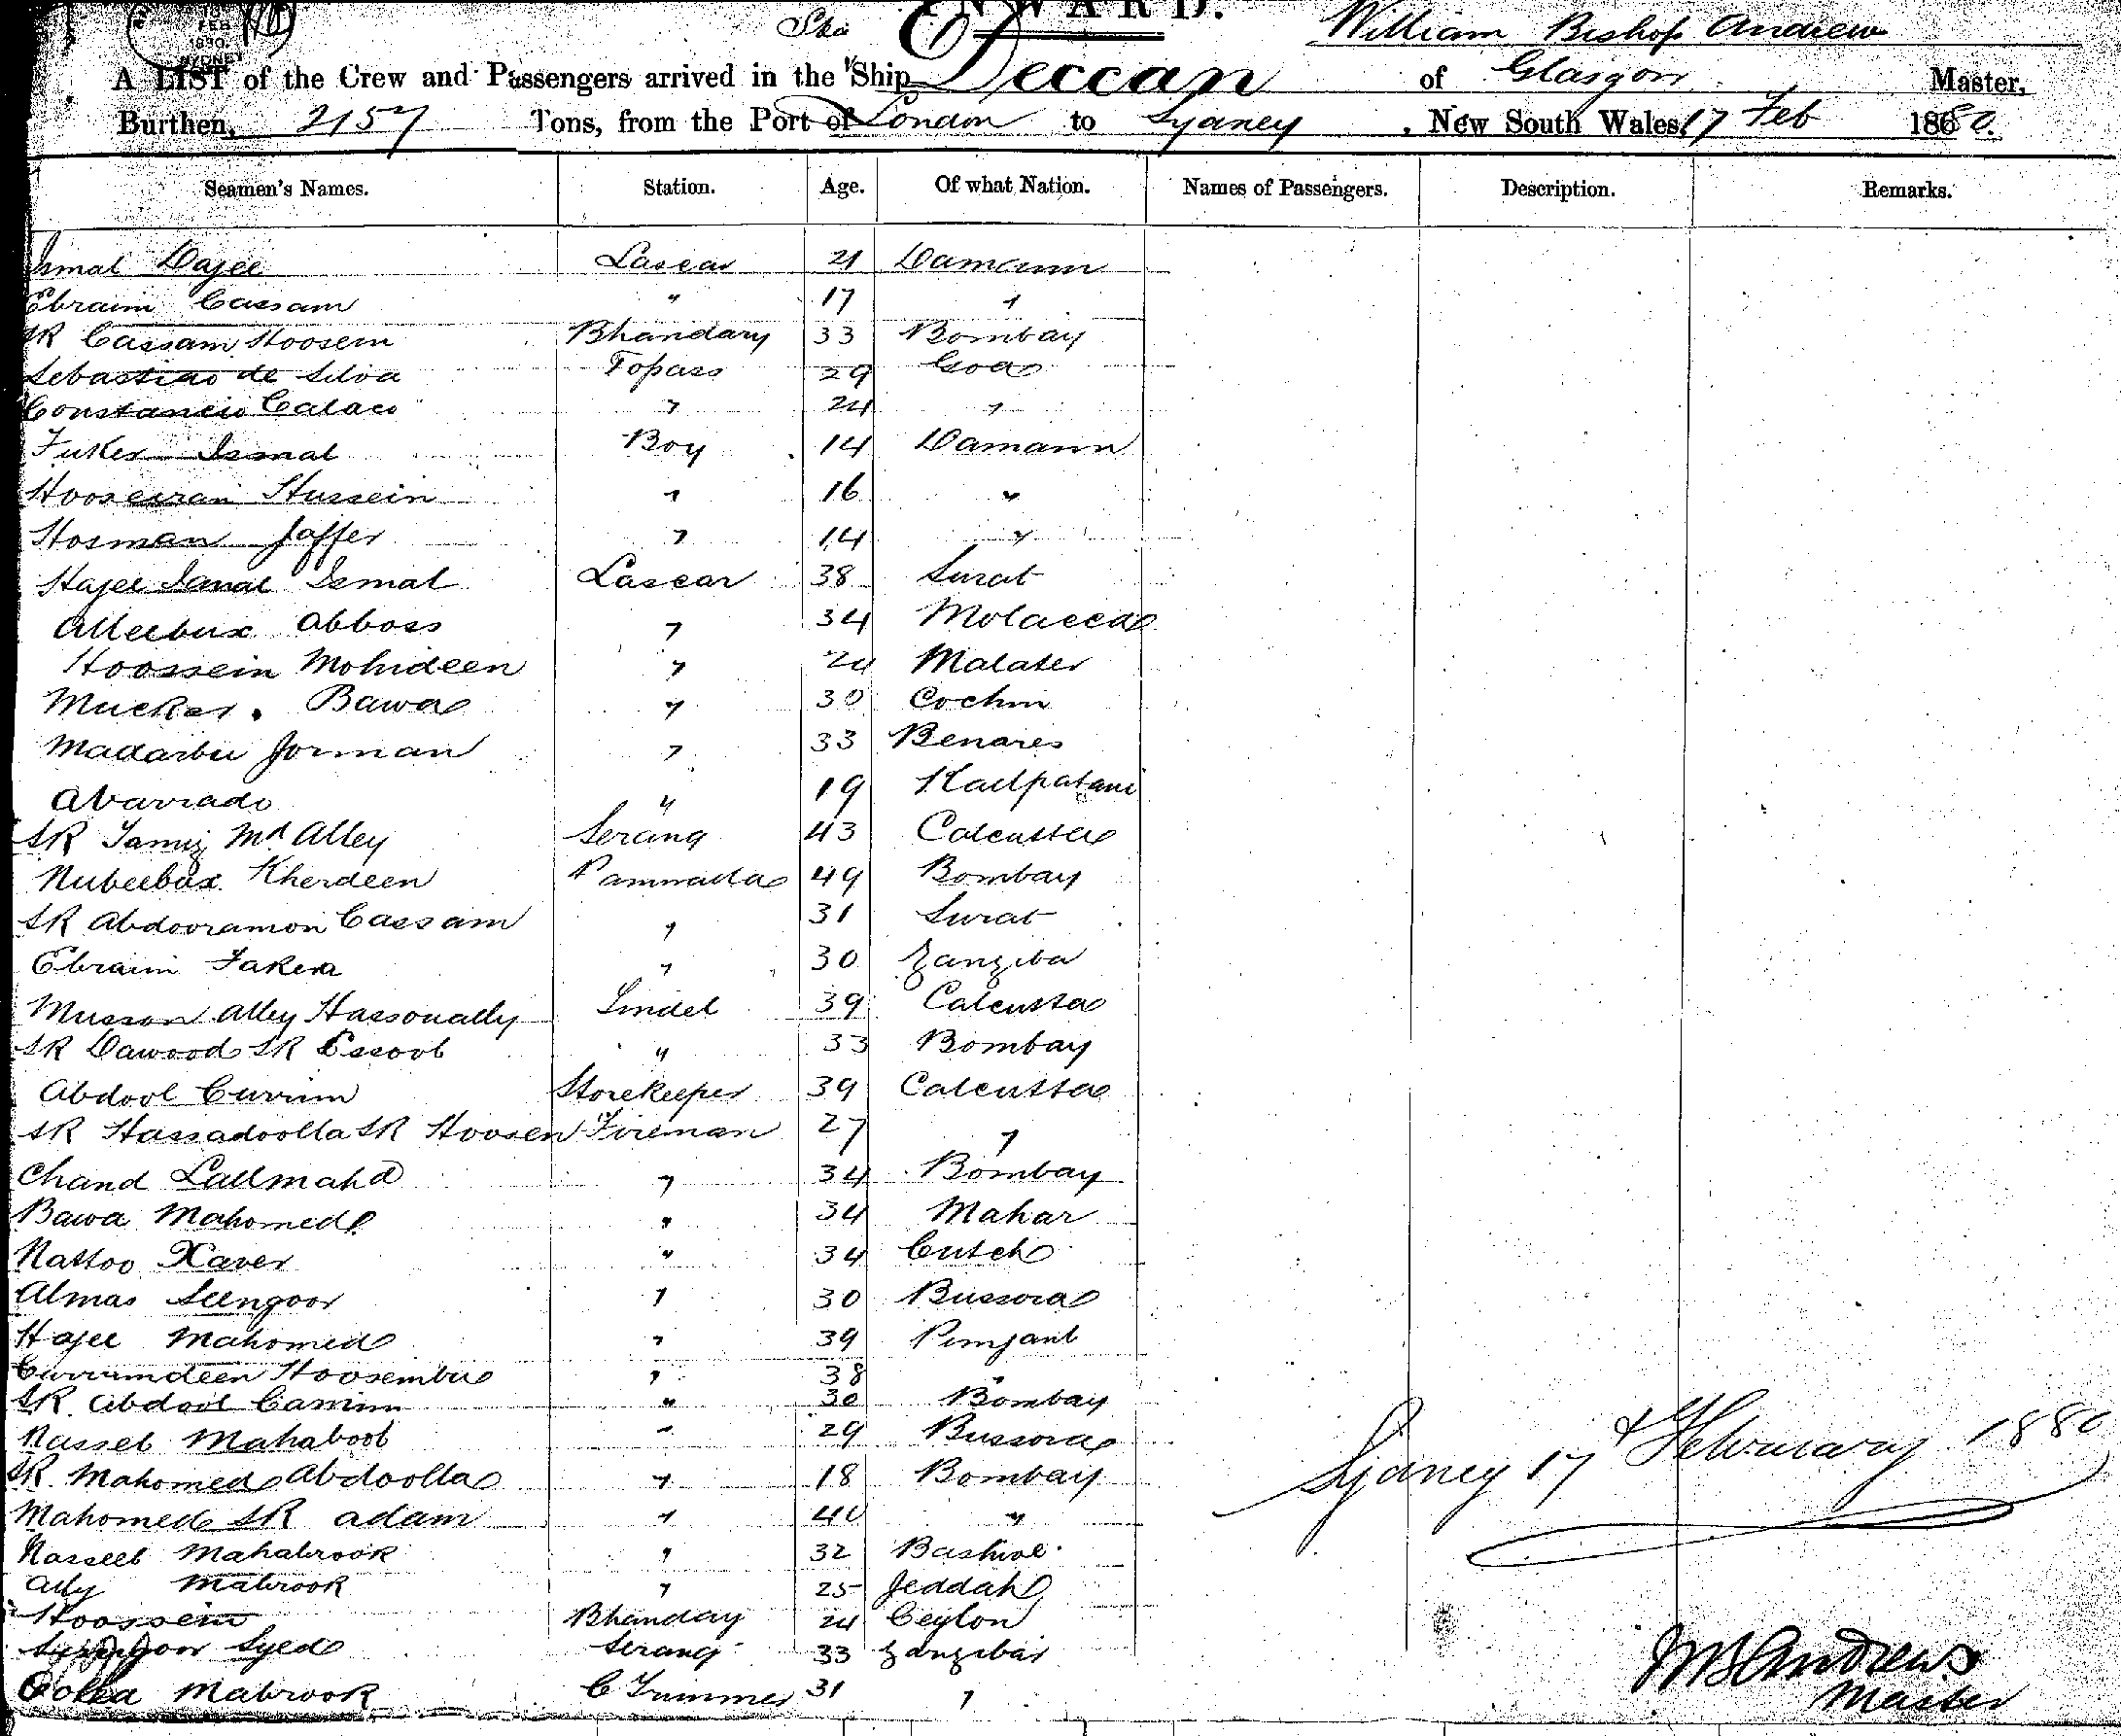 INWARD.
William Bishop Andrew
A LIST of the Crew and Passengers arrived in the Ship Deccan of Glasgow Master,
Burthen, 2157 Tons, from the Port of London to Sydney, New South Wales 17 Feb 1880.
Seamen's Names. Station. Age. Of what Nation. Names of Passengers. Description. Remarks.
Ismal Dajee Lascar 21 Damaun
Ebraim Cassam " 17 "
SR Cassam Hoosein Bhandary 33 Bombay
Sebastiao de Silva Topass 29 Goa
Constancio Calaco " 24 "
Fuker Ismal Boy 14 Damann
Hussein " 16 "
Hosman Jaffer " 14 "
Hajee Ismal Lascar 38 Surat
Alleebux Abboss " 34
Hoossein Mohideen " 24
Mucker Bawa " 30 Cochin
Madarbu Jorman " 33 Benares
" 19
SR Tamiz Md Alley Serang 43 Calcutta
Nubeebax Kherdeen 49 Bombay
SR Abdooramon Cassam " 31 Surat
Ebraim Fakera " 30 Zanziba
Musson Alley Hassonally Tindel 39 Calcutta
SR Dawood SR Essoob " 33 Bombay
Abdool Currim Storekeeper 39 Calcutta
SR Hassadoolla SR Hoosen Fireman 27 "
Chand Lallmahd " 34 Bombay
Bawa Mahomed " 34 Mahar
Nattoo Xaver " 34 Cutch
Almas Seengoor " 30 Bussora
Hajee Mahomed " 39 Punjaub
Currimdeen Hoosembu " 38 "
SR Abdool Camim " 30 Bombay
Nasseb Mahaboob " 29 Bussora
SR Mahomed Abdoolla " 18 Bombay
Mahomed SR Adam " 40 "
Nasseeb Mahabrook " 32
Ally Mabrook " 25 Jeddah
Hoossein Bhanday 24 Ceylon
Syed Serang 33 Zanzibar
Mabrook C Trimmer 31 "
Sydney 17th February 1880
WB Andrews
Master